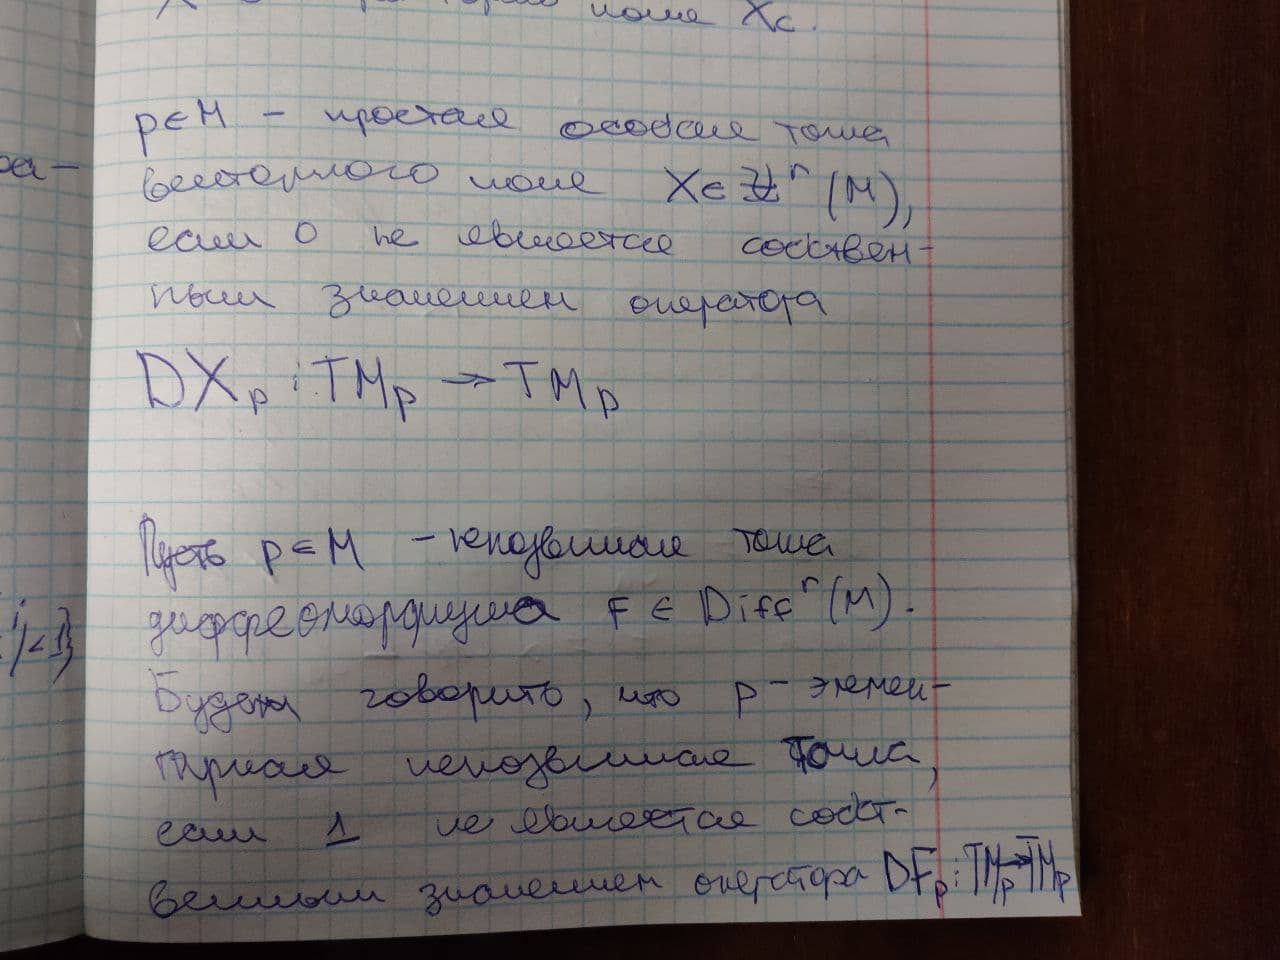 поля Xc.
p∈M – простая особая точка
векторного поля X∈𝔛ʳ(M),
если 0 не является собствен-
ным значением оператора
DXₚ : TMₚ → TMₚ
Пусть p∈M – неподвижная точка
диффеоморфизма F ∈ Diffʳ(M).
Будем говорить, что p – элемен-
тарная неподвижная точка,
если 1 не является собст-
венным значением оператора DFₚ : TMₚ→TMₚ